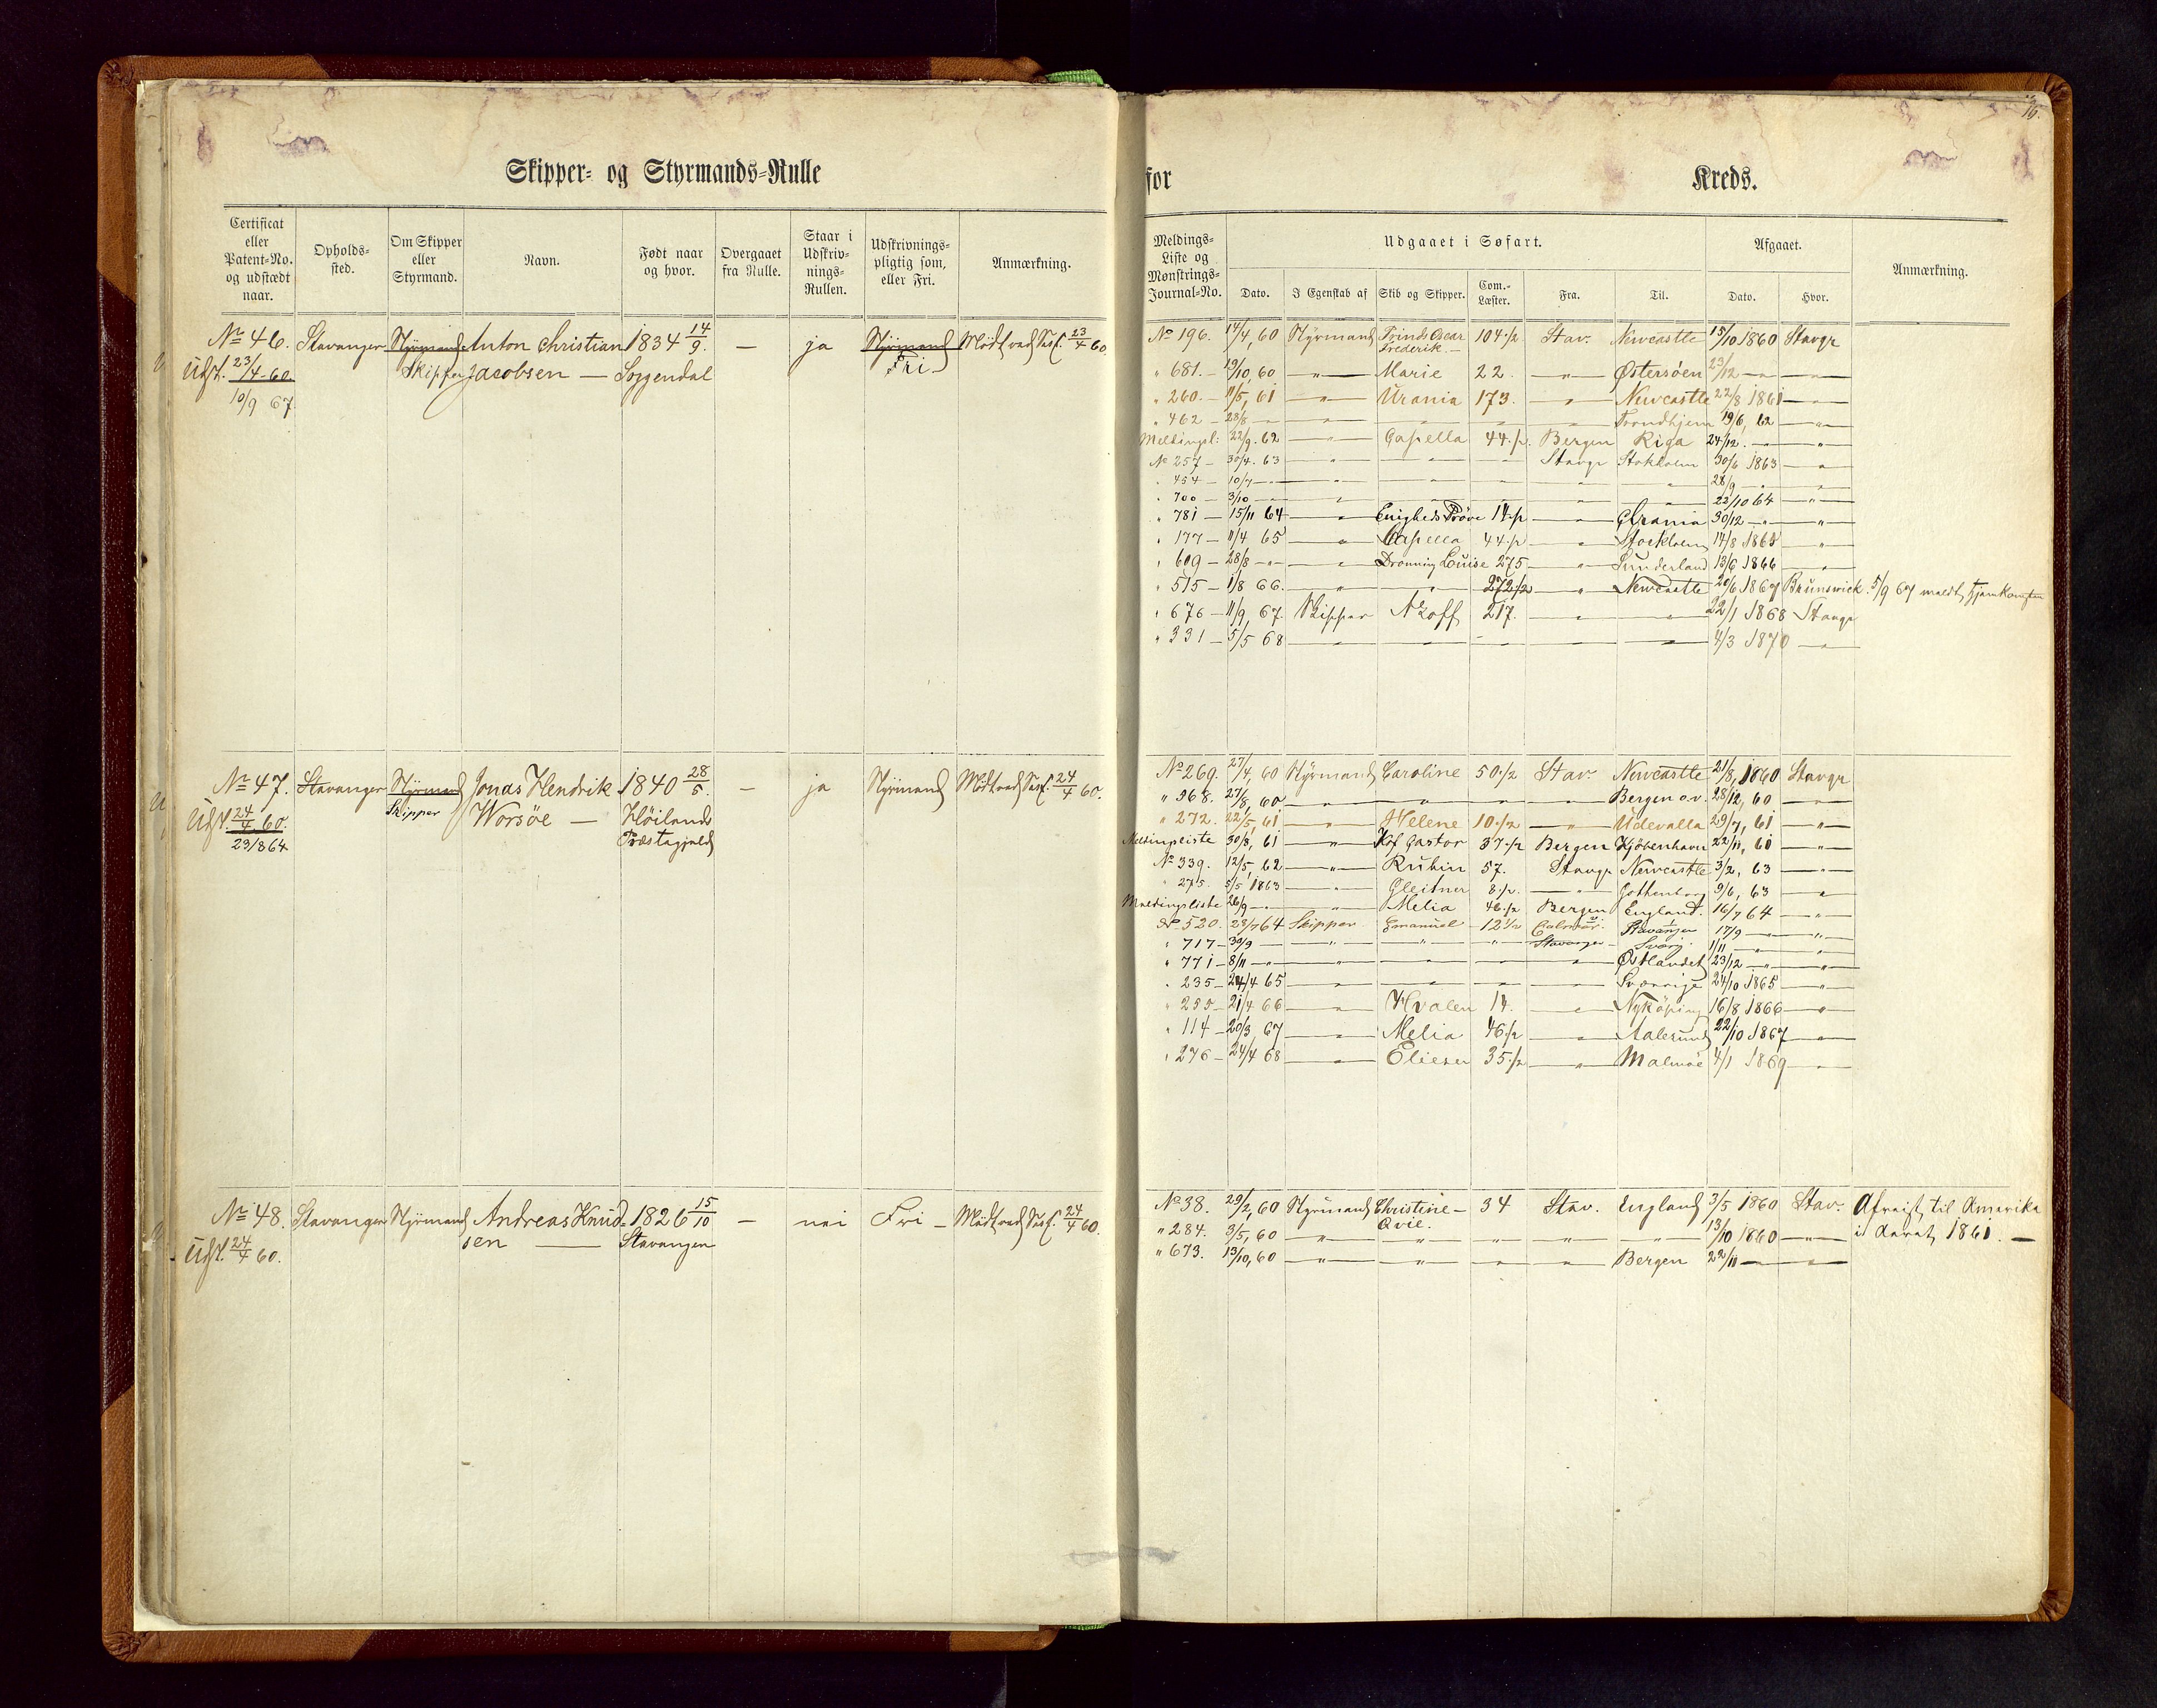 Skipper- og Styrmands-Rulle
Certificat eller Patent-No. og udstædt naar. Opholds-sted. Om Skipper eller Styrmand. Navn. Født naar og hvor. Overgaaet fra Rulle. Staar i Udskriv-nings-Rullen. Udskrivnings-pligtig som, eller Fri. Anmærkning.
No 46. Stavanger Styrmand Anton Christian 1834 14/9. — ja Styrmand Mødt ved Sess. 23/4 60
Udst. 23/4 60. Skipper Jacobsen — Soggendal Fri
10/9 67.
No 47. Stavanger Styrmand Jonas Hendrik 1840 28/5. — ja Styrmand Mødt ved Sess. 24/4 60.
Udst. 24/4 60. Skipper Worsöe — Höiland
23/8 64 Præstegjeld
No 48. Stavanger Styrmand Andreas Knud- 1826 15/10 — nei Fri — Mødt ved Sess. 24/4 60.
Udst. 24/4 60. sen — Stavanger
16.
for Kreds.
Meldings-Liste og Mønstrings-Journal-No. Udgaaet i Søfart. Afgaaet. Anmærkning.
Dato. I Egenskab af Skib og Skipper. Com.-Læster. Fra. Til. Dato. Hvor.
No 196. 14/4, 60 Styrmand Prinds Oscar Frederik — 104 1/2 Stav. Newcastle 15/10 1860 Stavgr
" 681 — 19/10, 60 — " — Marie 22. — " — Østersøen 23/12 — " — — " —
" 260. — 11/5, 61 — " — Urania 173. — " — Newcastle 22/8 1861 — " —
" 462 — 28/8 — " — — " — — " — — " — — " — Trondhjem 19/6, 62 — " —
Meldingsl: 22/9. 62 — " — Capella 44 1/2 Bergen Riga 24/12. — " — — " —
No 257 — 30/4. 63 — " — — " — — " — Stavgr Stokholm 30/6 1863 — " —
" 454 — 10/7 — " — — " — — " — — " — — " — — " — 28/9 — " — — " —
" 700 — 3/10 — " — — " — — " — — " — — " — — " — 22/10 64 — " —
" 781 — 15/11 64 — " — Enigheds Prøve 14 1/2 — " — Grania 30/12 — " — — " —
" 177 — 11/4 65 — " — Capella 44 1/2 — " — Stockholm 14/8 1865 — " —
" 609 — 28/8 — " — — " — Dronning Louise 275 — " — Sunderland 13/6 1866 — " —
" 515 — 1/8 66. — " — — " — 272 1/2 — " — Newcastle 20/6 1867 Brunswick. 5/9 67 meldt Hjemkomsten
" 676 — 11/9, 67. Skipper Azoff 217. — " — — " — 22/1 1868 Stavgr
" 331 — 5/5 68 — " — — " — — " — — " — — " — 4/3 1870 — " —
No 269. 27/4, 60 Styrmand Caroline 50 1/2 Stav. Newcastle 21/8, 1860 Stavgr
" 568. 27/8, 60 — " — — " — — " — — " — Bergen o.v. 28/12, 60 — " —
" 272. 22/5, 61 — " — Helene 10 1/2 — " — Udevalla 29/7, 61 — " —
Meldingsliste 30/8, 61 — " — Kof Castor 37 1/2 Bergen Kjöbenhavn 22/11, 61 — " —
No 339. 12/5, 62 — " — Rubin 57. Stavgr Newcastle 3/2, 63 — " —
" 275. 5/5 1863 — " — Gleitner 8 1/2 — " — Gothenborg 9/6, 63 — " —
Meldingsliste 26/9 — " — — " — Melia 46 1/2 Bergen England. 16/7 64 — " —
No 520. 28/7 64 Skipper Emanuel 12 1/2 Stavanger 17/9 — " — — " —
" 717 — 30/9 — " — — " — — " — Stavanger Sverig. 1/11 — " — — " —
" 771 — 8/11 — " — — " — — " — — " — — " — Østlandet 23/12 — " — — " —
" 235 — 24/4 65 — " — — " — — " — — " — Sverrige 24/10 1865 — " —
" 255 — 21/4 66 — " — Hvalen 14. — " — Nyköping 16/8 1866 — " —
" 114 — 20/3 67 — " — Melia 46 1/2 — " — Aalesund 22/10 1867 — " —
" 276 — 24/4 68 — " — Elieser 35 1/2 — " — Malmöe 4/1 1869 — " —
No 38. 29/2, 60 Styrmand Christine — 34 Stav. England 3/5 1860 Stav. Afreist til Amerika
" 284. 3/5, 60 — " — Qvie. — " — — " — — " — 13/10 1860 — " — i Aaret 1861. —
" 673. 13/10, 60 — " — — " — — " — — " — Bergen 22/11 — " — — " —